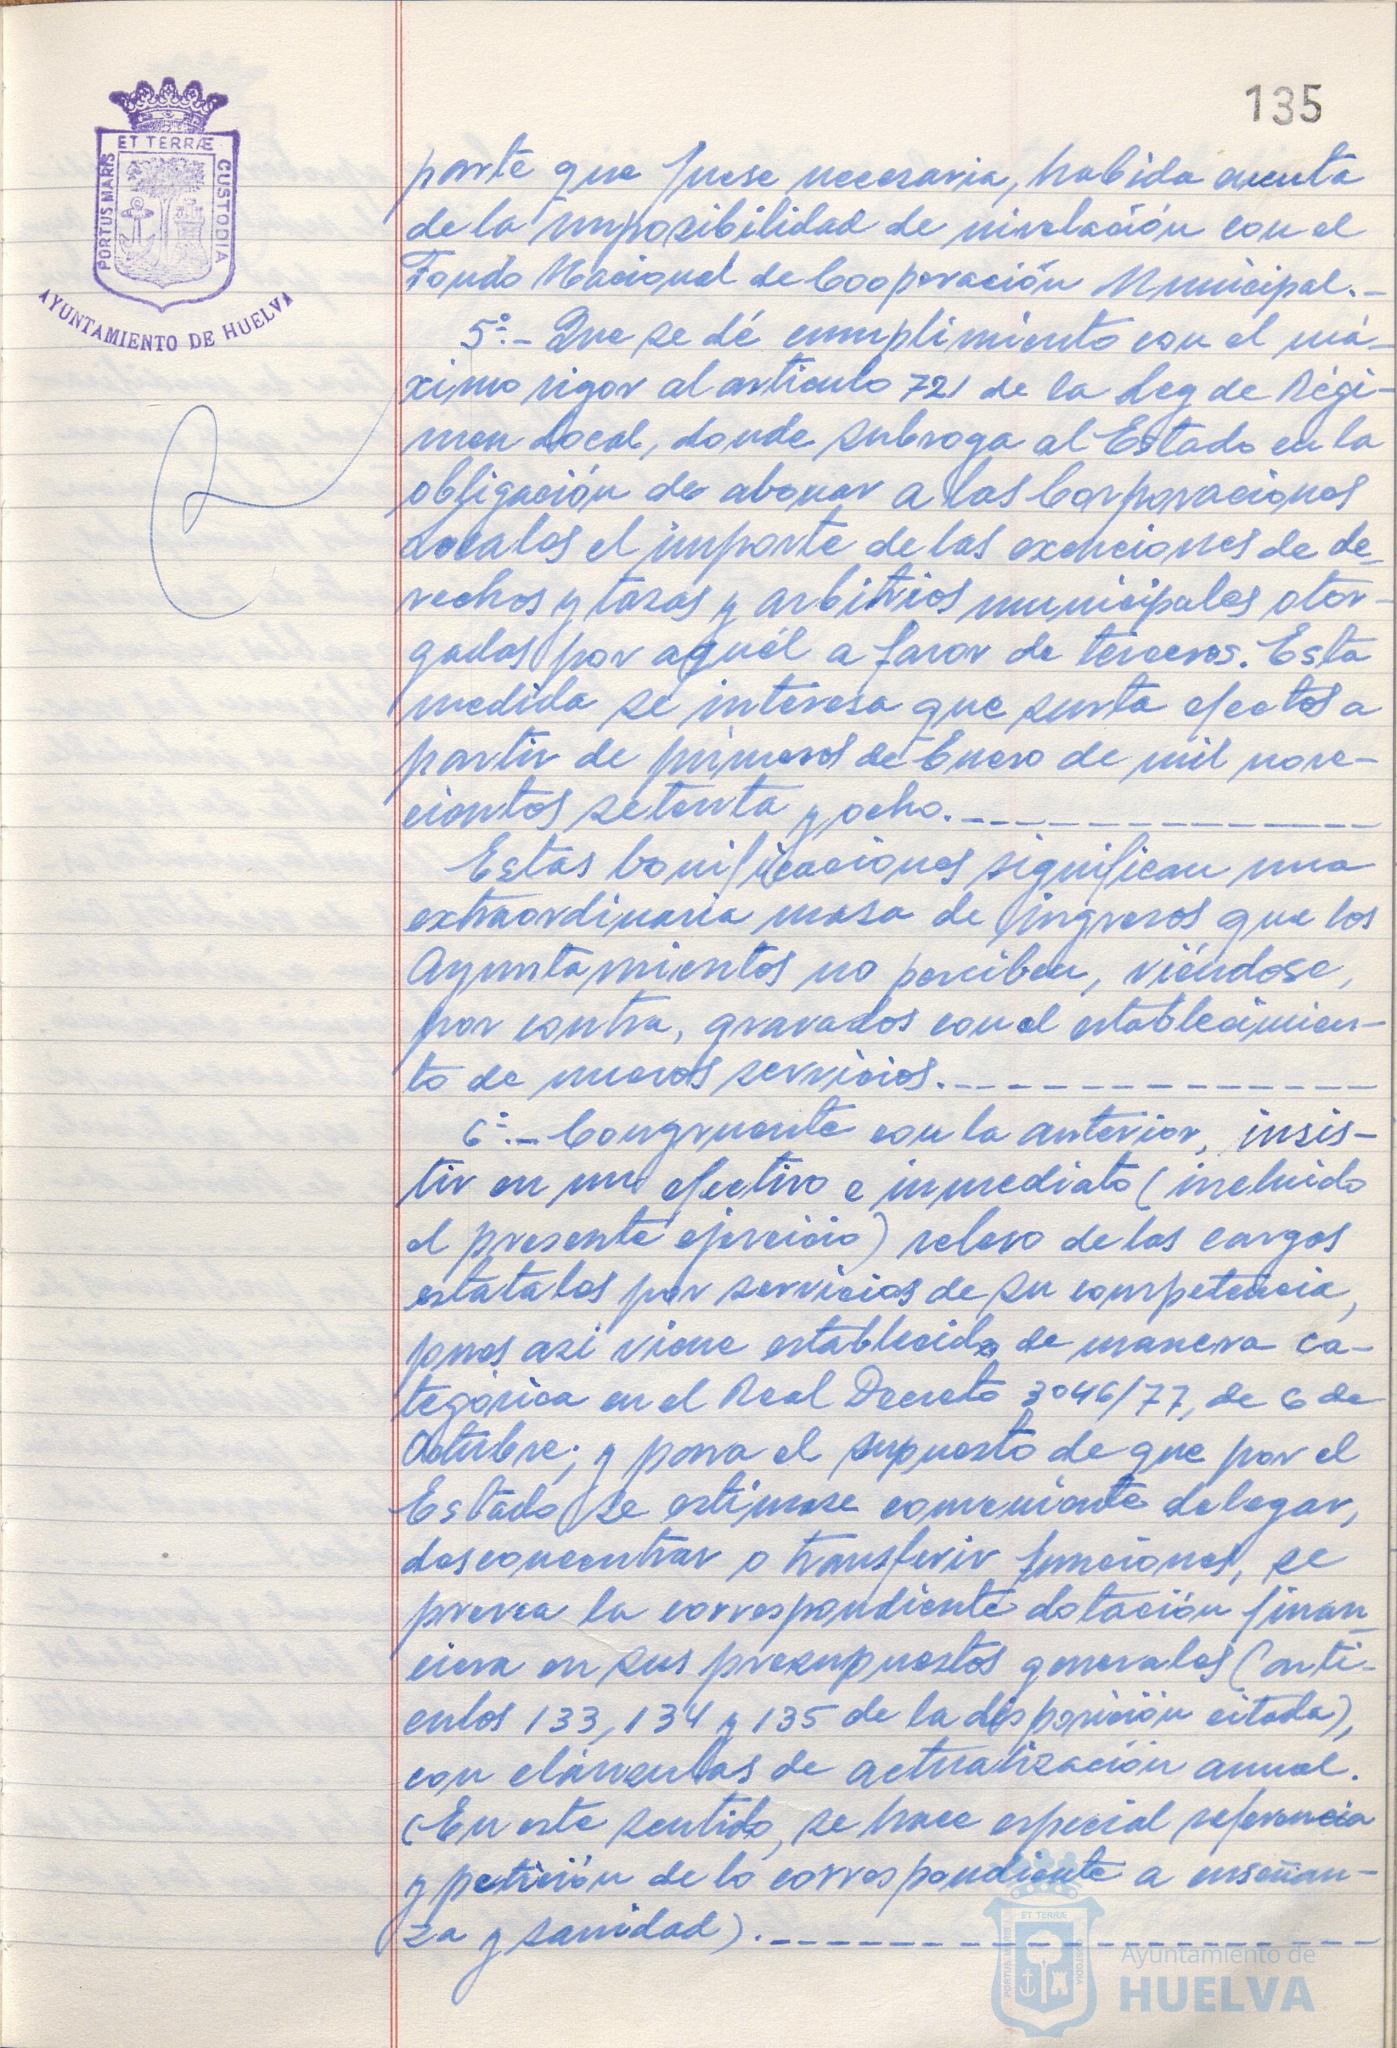 135
ET TERRÆ
PORTUS MARIS
CUSTODIA
AYUNTAMIENTO DE HUELVA
parte que fuese necesaria, habida cuenta
de la imposibilidad de nivelación con el
Fondo Nacional de Cooperación Municipal.-
5º.- Que se dé cumplimiento con el má-
ximo rigor al artículo 721 de la Ley de Régi-
men Local, donde subroga al Estado en la
obligación de abonar a las Corporaciones
Locales el importe de las exenciones de de-
rechos y tasas y arbitrios municipales otor-
gadas por aquél a favor de terceros. Esta
medida se interesa que surta efectos a
partir de primeros de Enero de mil nove-
cientos setenta y ocho.
Estas bonificaciones significan una
extraordinaria masa de ingresos que los
Ayuntamientos no perciben, viéndose,
por contra, gravados con el establecimien-
to de nuevos servicios.
6º.- Congruente con la anterior, insis-
tir en un efectivo e inmediato (incluido
el presente ejercicio) relevo de las cargas
estatales por servicios de su competencia,
pues asi viene establecido de manera ca-
tegórica en el Real Decreto 3046/77, de 6 de
Octubre; y para el supuesto de que por el
Estado se estimase conveniente delegar,
desconcentrar o transferir funciones, se
prevea la correspondiente dotación finan-
ciera en sus presupuestos generales (artí-
culos 133, 134 y 135 de la disposición citada),
con cláusulas de actualización anual.
(En este sentido, se hace especial referencia
y petición de lo correspondiente a enseñan-
za y sanidad).
ET TERRÆ
PORTUS MARIS
CUSTODIA
Ayuntamiento de
HUELVA